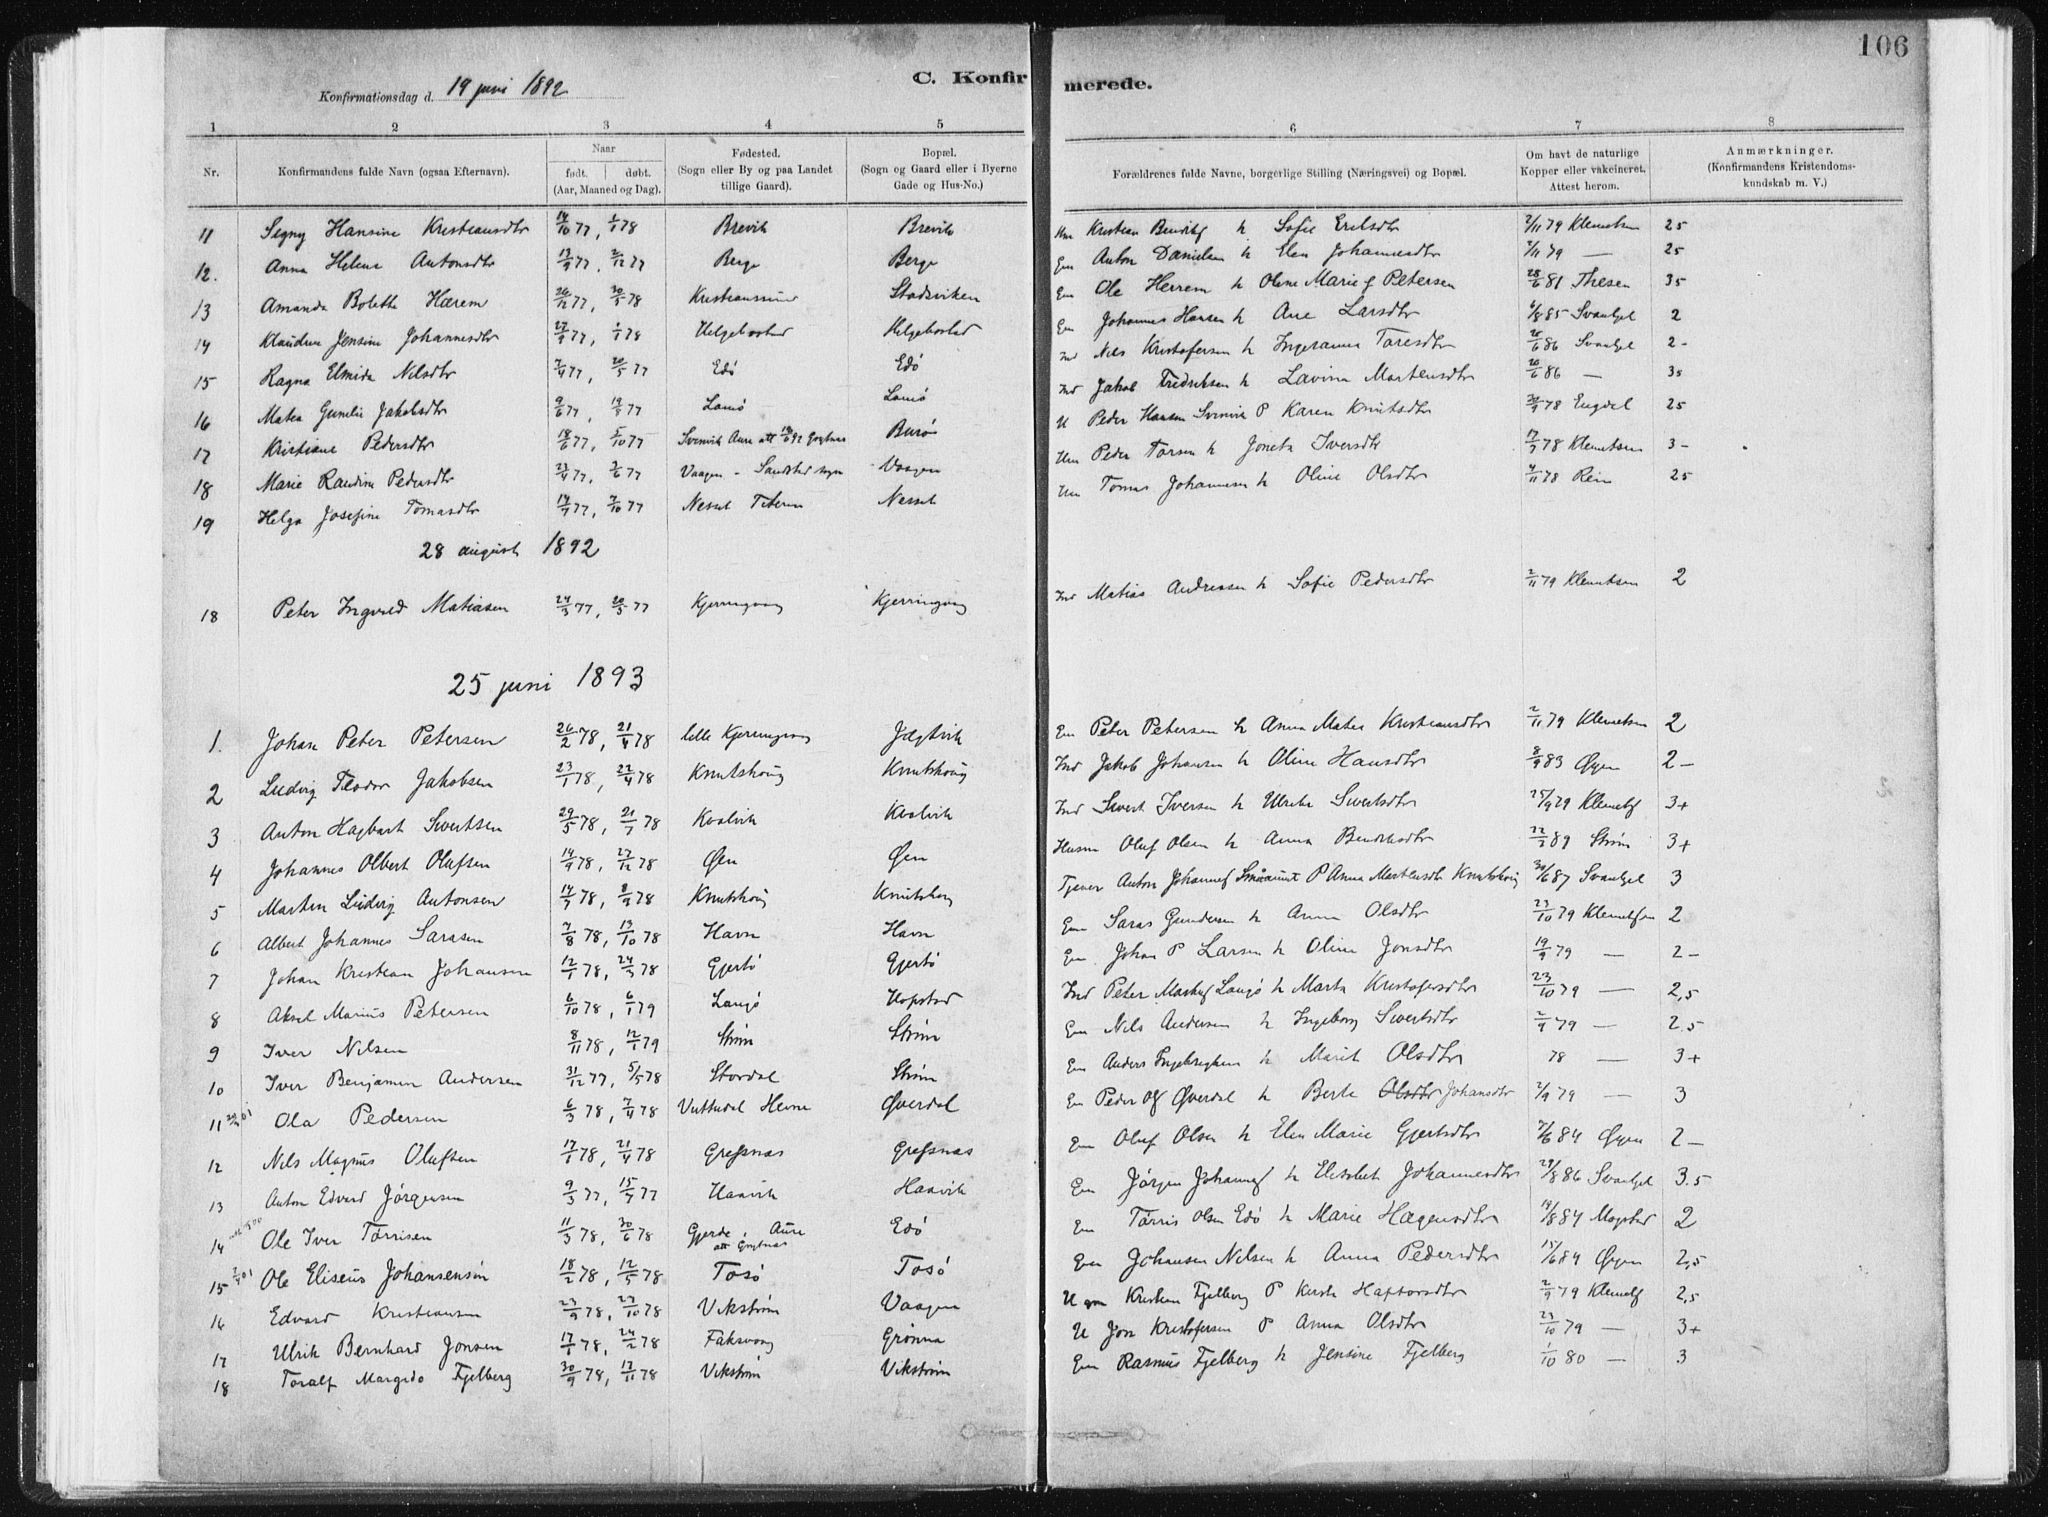 106
C. Konfirmerede.
Konfirmationsdag d. 19 juni 1892
1 2 3 4 5 6 7 8
Nr. Konfirmandens fulde Navn (ogsaa Efternavn). Naar født. døbt. (Aar, Maaned og Dag). Fødested. (Sogn eller By og paa Landet tillige Gaard). Bopæl. (Sogn og Gaard eller i Byerne Gade og Hus-No.) Forældrenes fulde Navne, borgerlige Stilling (Næringsvei) og Bopæl. Om havt de naturlige Kopper eller vakcineret. Attest herom. Anmærkninger. (Konfirmandens Kristendomskundskab m. V.)
11 Segny Hansine Kristiansdtr 14/10 77, 1/1 78 Brevik Brevik Kristian Sofie Eriksdtr 2/11 79 Klemetsen 25
12. Anna Helene Antonsdtr 13/9 77, 77 Berge Berge Em Anton Danielsen h Elen Johannesdtr 2/11 79 — 25
13 Amanda Bolette Hærem 26/12 77, 30/3 78 Kristianssund Stadsviken Em Ole Herrem h Oline Marie Petersen 28/6 81 Thesen 35
14 Klaudine Jensine Johannesdtr 77, 78 Helgebostad Helgebostad Em Johannes Hansen h Ane Larsdtr 6/8 85 Svanhjel 2
15 Ragna Elmida Nilsdtr 77, 20/5 77 Edö Edö Ind Nils Kristofersen h Ingeranna Taresdtr 26/6 86 Svanhjel 2-
16 Matea Gunelie Jakobsdtr 9/6 77, 19/8 77 Lamö Lamö Ind Jakob Fredriksen h Lavina Martensdtr 26/6 86 — 35
17 Kristiane Pedersdtr 18/6 77, 5/10 77 Svinvik Aure att Burö U Peder Hansen Svinvik P Karen Knutsdtr 30/9 78 Engdal 25
18 Marie Randine Pedersdtr 23/4 77, 3/6 77 Vaagen - Sandstad sogn Vaagen Peder Tarsen h Joneta Iversdtr 17/7 78 Klemetsen 3-
19 Helga Josefine Tomasdtr 14/7 77, 7/10 77 Nesset Titeren Nesset Tomas Johannesen h Oline Olsdtr 4/11 78 Rein 25
28 august 1892
18 Peter Ingvald Matiasen 24/3 77, 20/5 77 Kjerringvaag Kjerringvaag Ind Matias Andreasen h Sofie Pedersdtr 2/11 79 Klemetsen 2
25 juni 1893
1. Johan Peter Petersen 26/2 78, 21/4 78 lille Kjerringvaag Jægtvik Em Peter Petersen h Anna Matea Kristiansdtr 2/11 79 Klemetsen 2
2 Ludvig Teodor Jakobsen 23/1 78, 22/4 78 Knutshoug Knutshoug Ind Jakob Johansen h Oline Hansdtr 8/9 83 Øyen 2-
3 Anton Hagbart Sivertsen 29/5 78, 21/7 78 Kvalvik Kvalvik Ind Sivert Iversen h Ulrike Sivertsdtr 25/9 79 Klemetsf 3+
4 Johannes Olbert Olufsen 14/9 78, 27/12 78 Øen Øen Husm Oluf Olsen h Anna Bendiksdtr 89 Strøm 3+
5 Marten Ludvig Antonsen 14/7 78, 8/9 78 Knutshoug Knutshoug Tjener Anton Johannesf P Anna Martensdtr Knutshoug 30/6 87 Svanhjel 3
6 Albert Johannes Sarasen 7/8 78, 13/10 78 Havn Havn Em Saras Gundersen h Anna Olsdtr 23/10 79 Klemetsen 2
7 Johan Kristian Johansen 12/1 78, 24/3 78 Gjertö Gjertö Em Johan P Larsen h Oline Jonsdtr 19/9 79 — 2-
8 Aksel Marius Petersen 6/10 78, 6/1 79 Langö Hopstad Ind Peter Langö h Marta Kristofersdtr 23/10 79 — 2,5
9 Iver Nilsen 8/11 78, 12/1 79 Strøm Strøm Em Nils Andersen h Ingeborg Sivertsdtr 2/9 79 — 2,5
10 Iver Benjamin Andersen 31/12 77, 5/5 78 Stordal Strøm Em Anders Ingebrigtsen h Marit Olsdtr 78 — 3+
11 Ola Pedersen 6/3 78, 7/4 78 Vuttudal Hevne Øverdal Em Peder Øverdal h Berte Olsdtr Johansdtr 2/9 79 — 3
12 Nils Magnus Olufsen 17/1 78, 21/4 78 Grefsnas Grefsnas Em Oluf Olsen h Elen Marie Gjertsdtr 7/6 84 Øyen 2-
13 Anton Edvard Jörgensen 9/3 77, 15/7 77 Haavik Haavik Em Jörgen Johannesf h Elisabet Johannesdtr 29/8 86 Svanhjel 3.5
14 Ole Iver Tørrisen 11/3 78, 30/6 78 Gjerde, Aure att Edö Em Tørris Olsen Edö h Marie Hagensdtr 19/8 84 Magstad 2
15 Ole Eliseus Johansensön 18/2 78, 12/5 78 Tosö Tosö Em Johansen Nilsen h Anna Pedersdtr 15/6 84 Øyen 2,5
16 Edvard Kristiansen 23/9 78, 27/10 78 Vikstrøm Vaagen U gm Kristian Fjelberg P Kirste Haftorsdtr 2/9 79 Klemetsf 2,5
17 Ulrik Bernhard Jonsen 17/1 78, 24/2 78 Faksvaag Grønna U Jon Kristofersen P Anna Olsdtr 23/10 79 — 3+
18 Toralf Margido Fjelberg 30/9 78, 17/11 78 Vikstrøm Vikstrøm Em Rasmus Fjelberg h Jensine Fjelberg 1/10 80 — 3